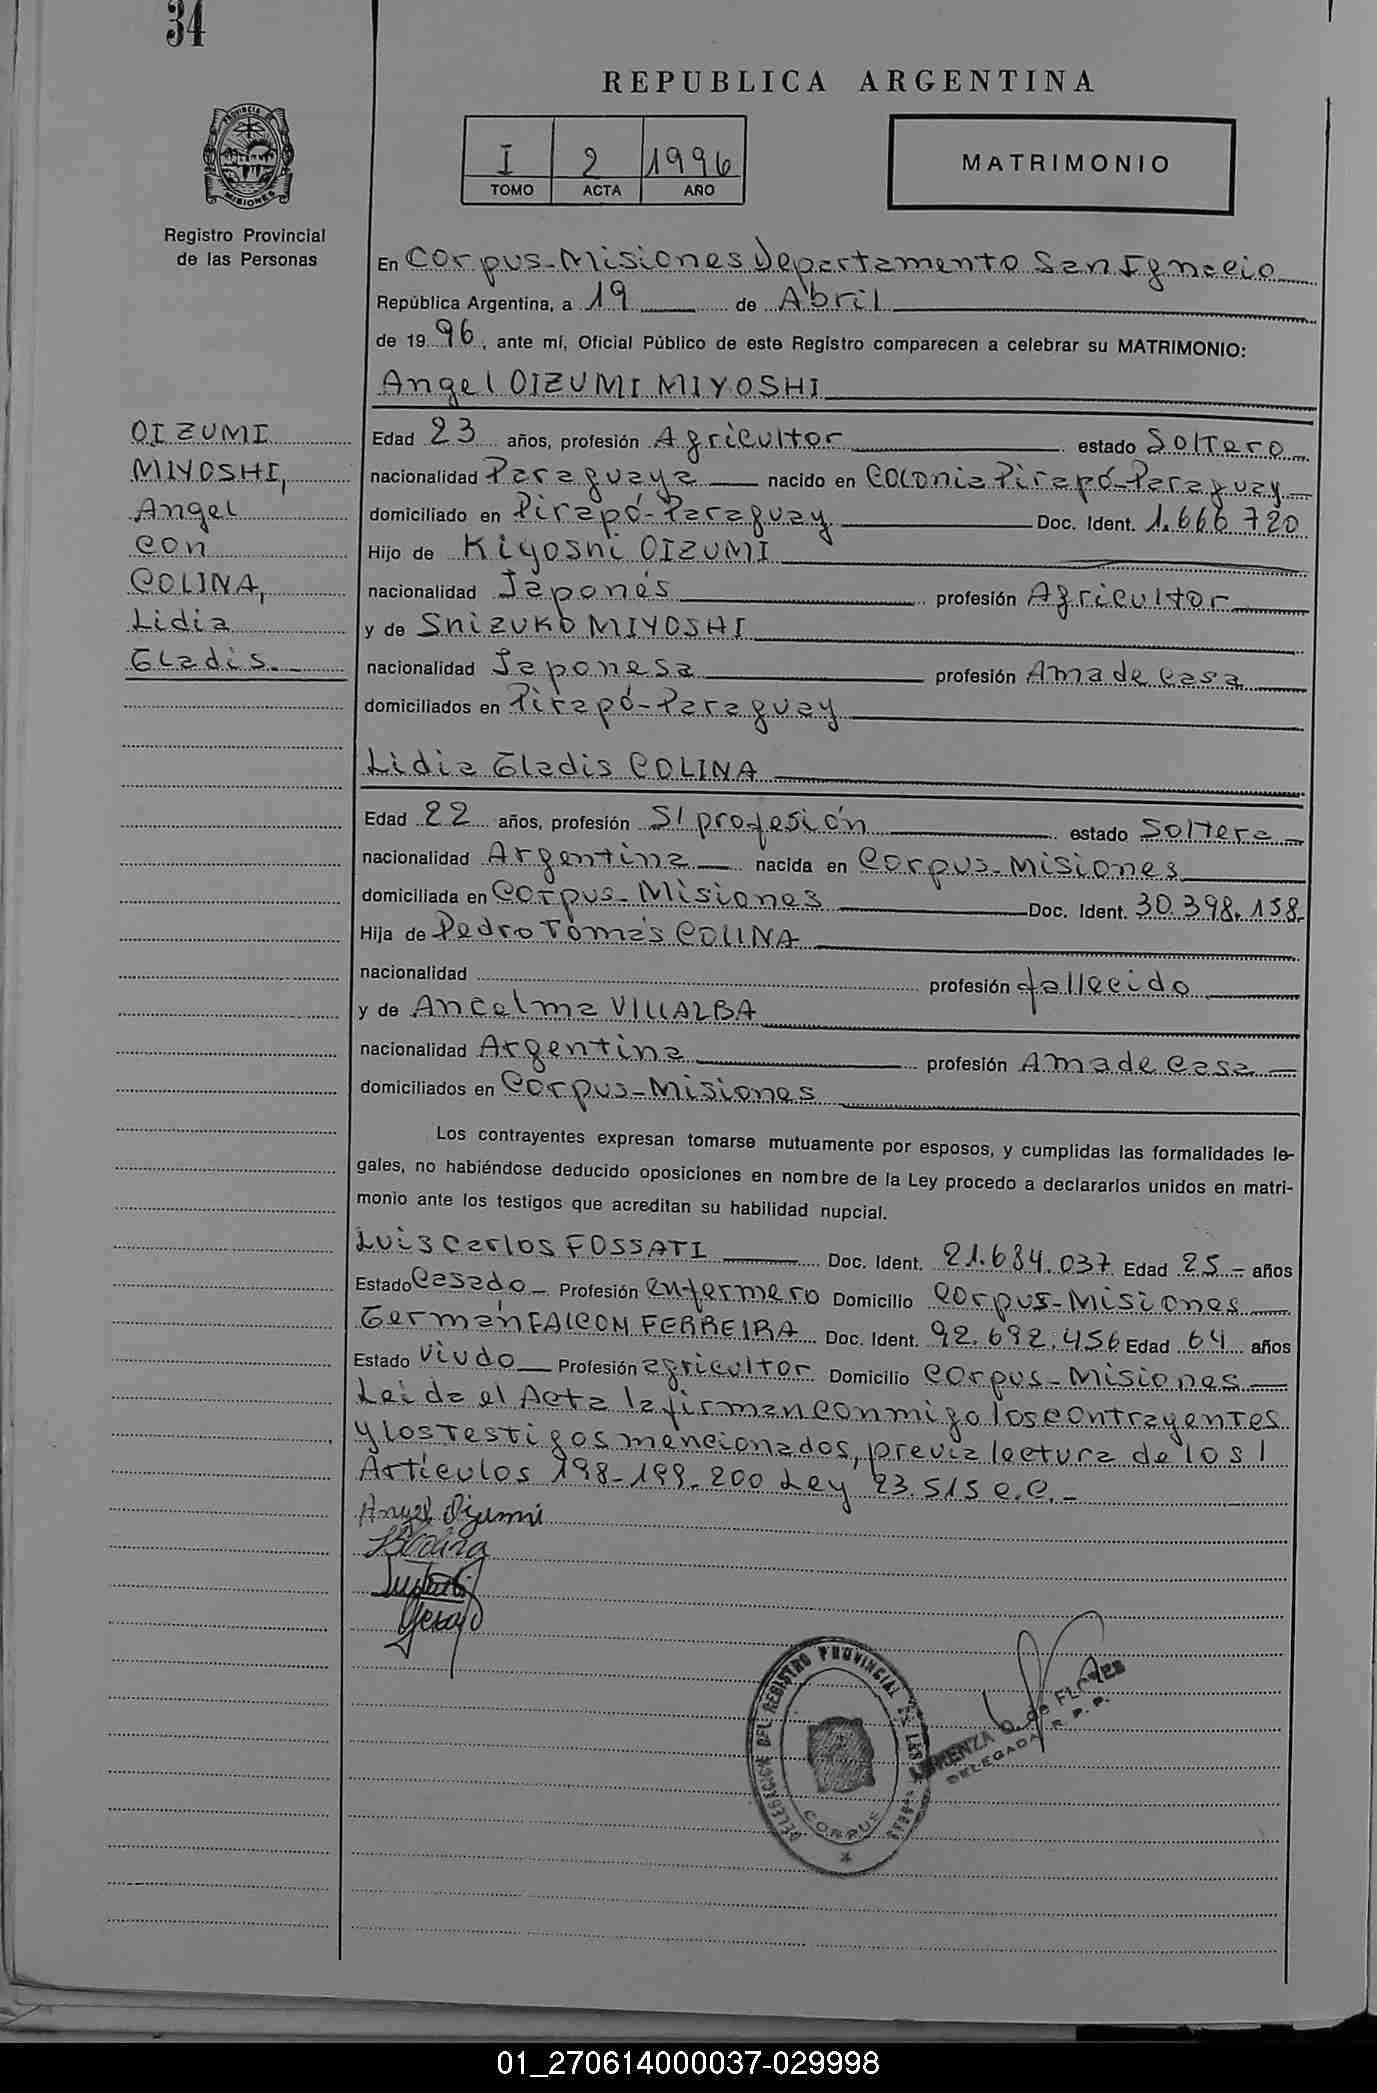 34
REPUBLICA ARGENTINA
PROVINCIA DE
MISIONES
Registro Provincial
de las Personas
I 2 1996
TOMO ACTA AÑO
MATRIMONIO
En Corpus-Misiones Departamento San Ignacio
República Argentina, a 19 de Abril
de 1996, ante mí, Oficial Público de este Registro comparecen a celebrar su MATRIMONIO:
Angel OIZUMI MIYOSHI
OIZUMI
MIYOSHI,
Angel
con
COLINA,
Lidia
Gladis.-
Edad 23 años, profesión Agricultor estado Soltero
nacionalidad Paraguaya nacido en Colonia Pirapó-Paraguay
domiciliado en Pirapó-Paraguay Doc. Ident. 1.666.720
Hijo de Kiyoshi OIZUMI
nacionalidad Japonés profesión Agricultor
y de Shizuko MIYOSHI
nacionalidad Japonesa profesión Ama de casa
domiciliados en Pirapó-Paraguay
Lidia Gladis COLINA
Edad 22 años, profesión S/profesión estado Soltera
nacionalidad Argentina nacida en Corpus-Misiones
domiciliada en Corpus-Misiones Doc. Ident. 30.398.158-
Hija de Pedro Tomás COLINA
nacionalidad profesión fallecido
y de Ancelma VILLALBA
nacionalidad Argentina profesión Ama de casa
domiciliados en Corpus-Misiones
Los contrayentes expresan tomarse mutuamente por esposos, y cumplidas las formalidades le-
gales, no habiéndose deducido oposiciones en nombre de la Ley procedo a declararlos unidos en matri-
monio ante los testigos que acreditan su habilidad nupcial.
Luis Carlos FOSSATI Doc. Ident. 21.684.037 Edad 25 años
Estado Casado Profesión enfermero Domicilio Corpus-Misiones
Germán FALCOM FERREIRA Doc. Ident. 92.692.456 Edad 64 años
Estado viudo Profesión agricultor Domicilio Corpus-Misiones
Leida el Acta la firman conmigo los contrayentes
y los testigos mencionados, previa lectura de los
Artículos 198-199-200 Ley 23.515 C.C.-
Angel Oizumi
DELEGACION DEL REGISTRO PROVINCIAL DE LAS
CORPUS
de FLORES
DELEGADA R. P. P.
01_270614000037-029998